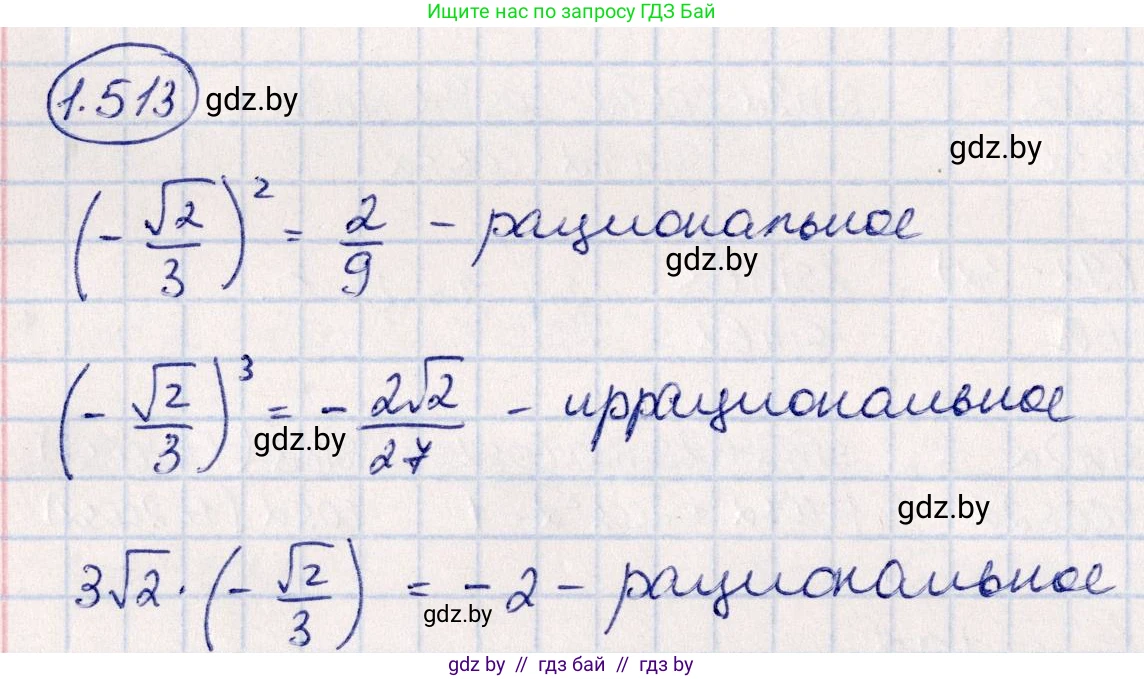 Ищите нас по запросу ГДЗ Бай
1.513 gdz.by
gdz.by
(-√2/3)² = 2/9 - рациональное
gdz.by
(-√2/3)³ = -2√2/27 - иррациональное
gdz.by
gdz.by
3√2·(-√2/3) = -2 - рациональное
gdz.by
gdz by // гдз бай // гдз by